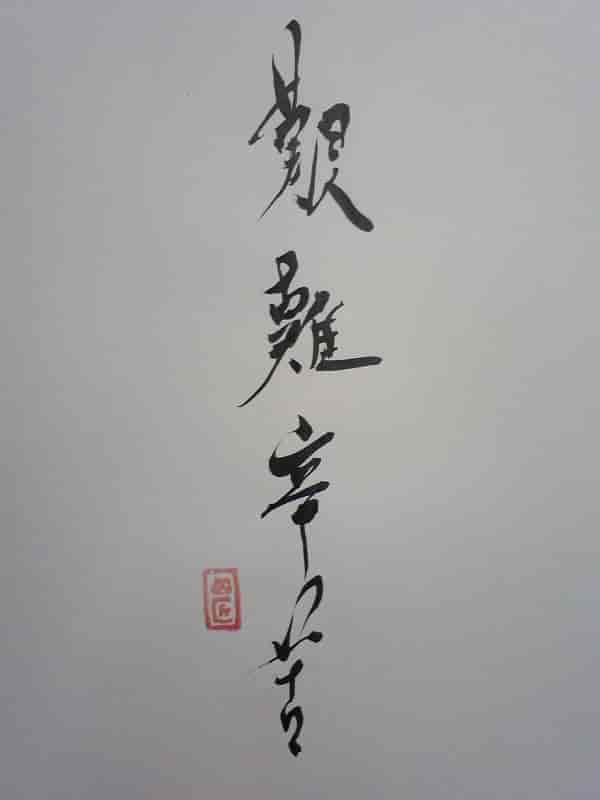 艱難辛苦